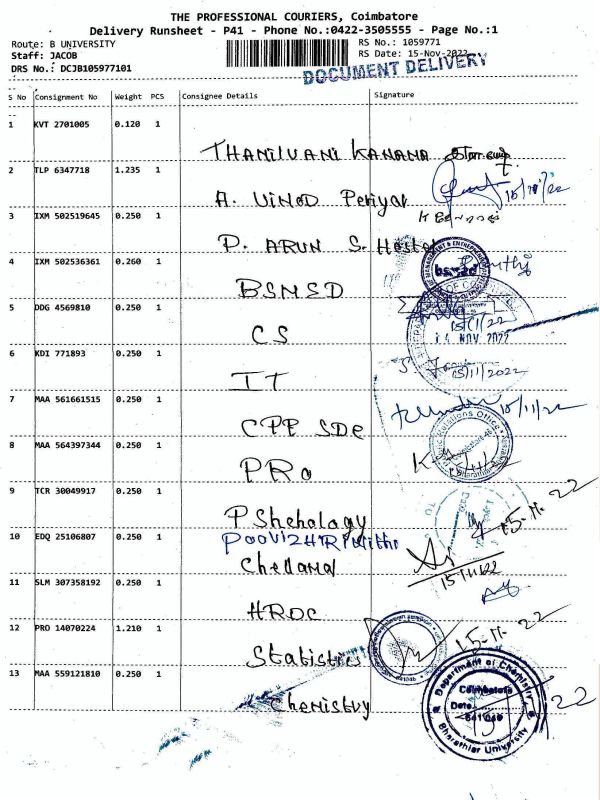 THE PROFESSIONAL COURIERS, Coimbatore
Delivery Runsheet - P41 - Phone No.:0422-3505555 - Page No.:1
Route: B UNIVERSITY
RS No.: 1059771
Staff: JACOB
RS Date: 15-Nov-2022
DRS No.: DCJB105977101
DOCUMENT DELIVERY
S No Consignment No Weight PCS Consignee Details Signature
1 KVT 2701005 0.120 1
THANILVANI KANAMA
2 TLP 6347718 1.235 1
A. VINOD Periyar 15/11/22
3 IXM 502519645 0.250 1
P. ARUN S. Hostel
4 IXM 502536361 0.260 1
BSMSD
bsmed
5 DDG 4569810 0.250 1
CS 15/11/22
14 NOV 2022
6 KDI 771893 0.250 1
IT 15/11/2022
7 MAA 561661515 0.250 1
CPP SDE 15/11/22
8 MAA 564397344 0.250 1
PRO
9 TCR 30049917 0.250 1
PShehology 15-11-22
10 EDQ 25106807 0.250 1
Chellamal 15/11/22
11 SLM 307358192 0.250 1
HRDC
12 PRO 14070224 1.210 1
Statistics 15-11-22
13 MAA 559121810 0.250 1
Chemistry
Department of Chemistry
Coimbatore
Date
641 046
Bharathiar University